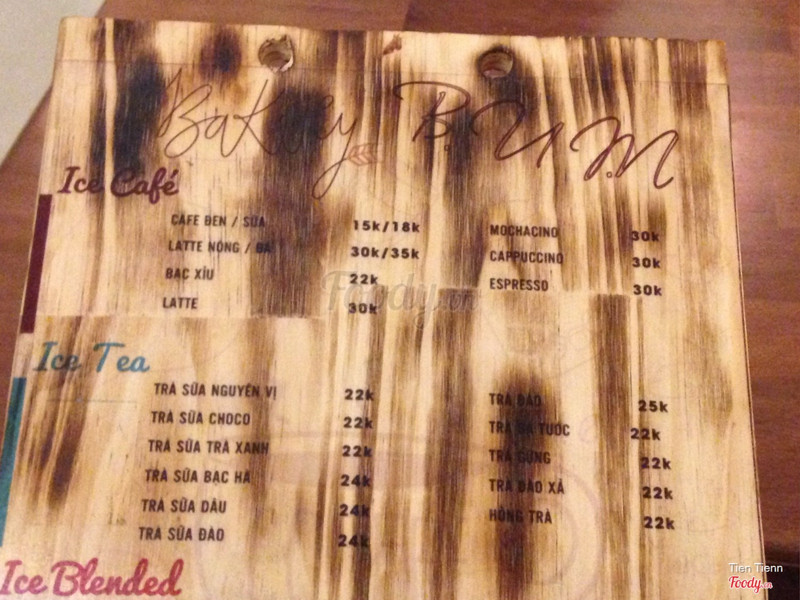 Bakery B.U.M
Ice Café
CAFE ĐEN / SỮA 15k/18k
LATTE NÓNG / ĐÁ 30k/35k
BẠC XỈU 22k
LATTE 30k
MOCHACINO 30k
CAPPUCCINO 30k
ESPRESSO 30k
Ice Tea
TRÀ SỮA NGUYÊN VỊ 22k
TRÀ SỮA CHOCO 22k
TRÀ SỮA TRÀ XANH 22k
TRÀ SỮA BẠC HÀ 24k
TRÀ SỮA DÂU 24k
TRÀ SỮA ĐÀO 24k
TRÀ ĐÀO 25k
TRÀ TƯỚC 22k
TRÀ GỪNG 22k
TRÀ ĐÀO XẢ 22k
HỒNG TRÀ 22k
Ice Blended
Foody.vn
Tien Tienn
Foody.vn